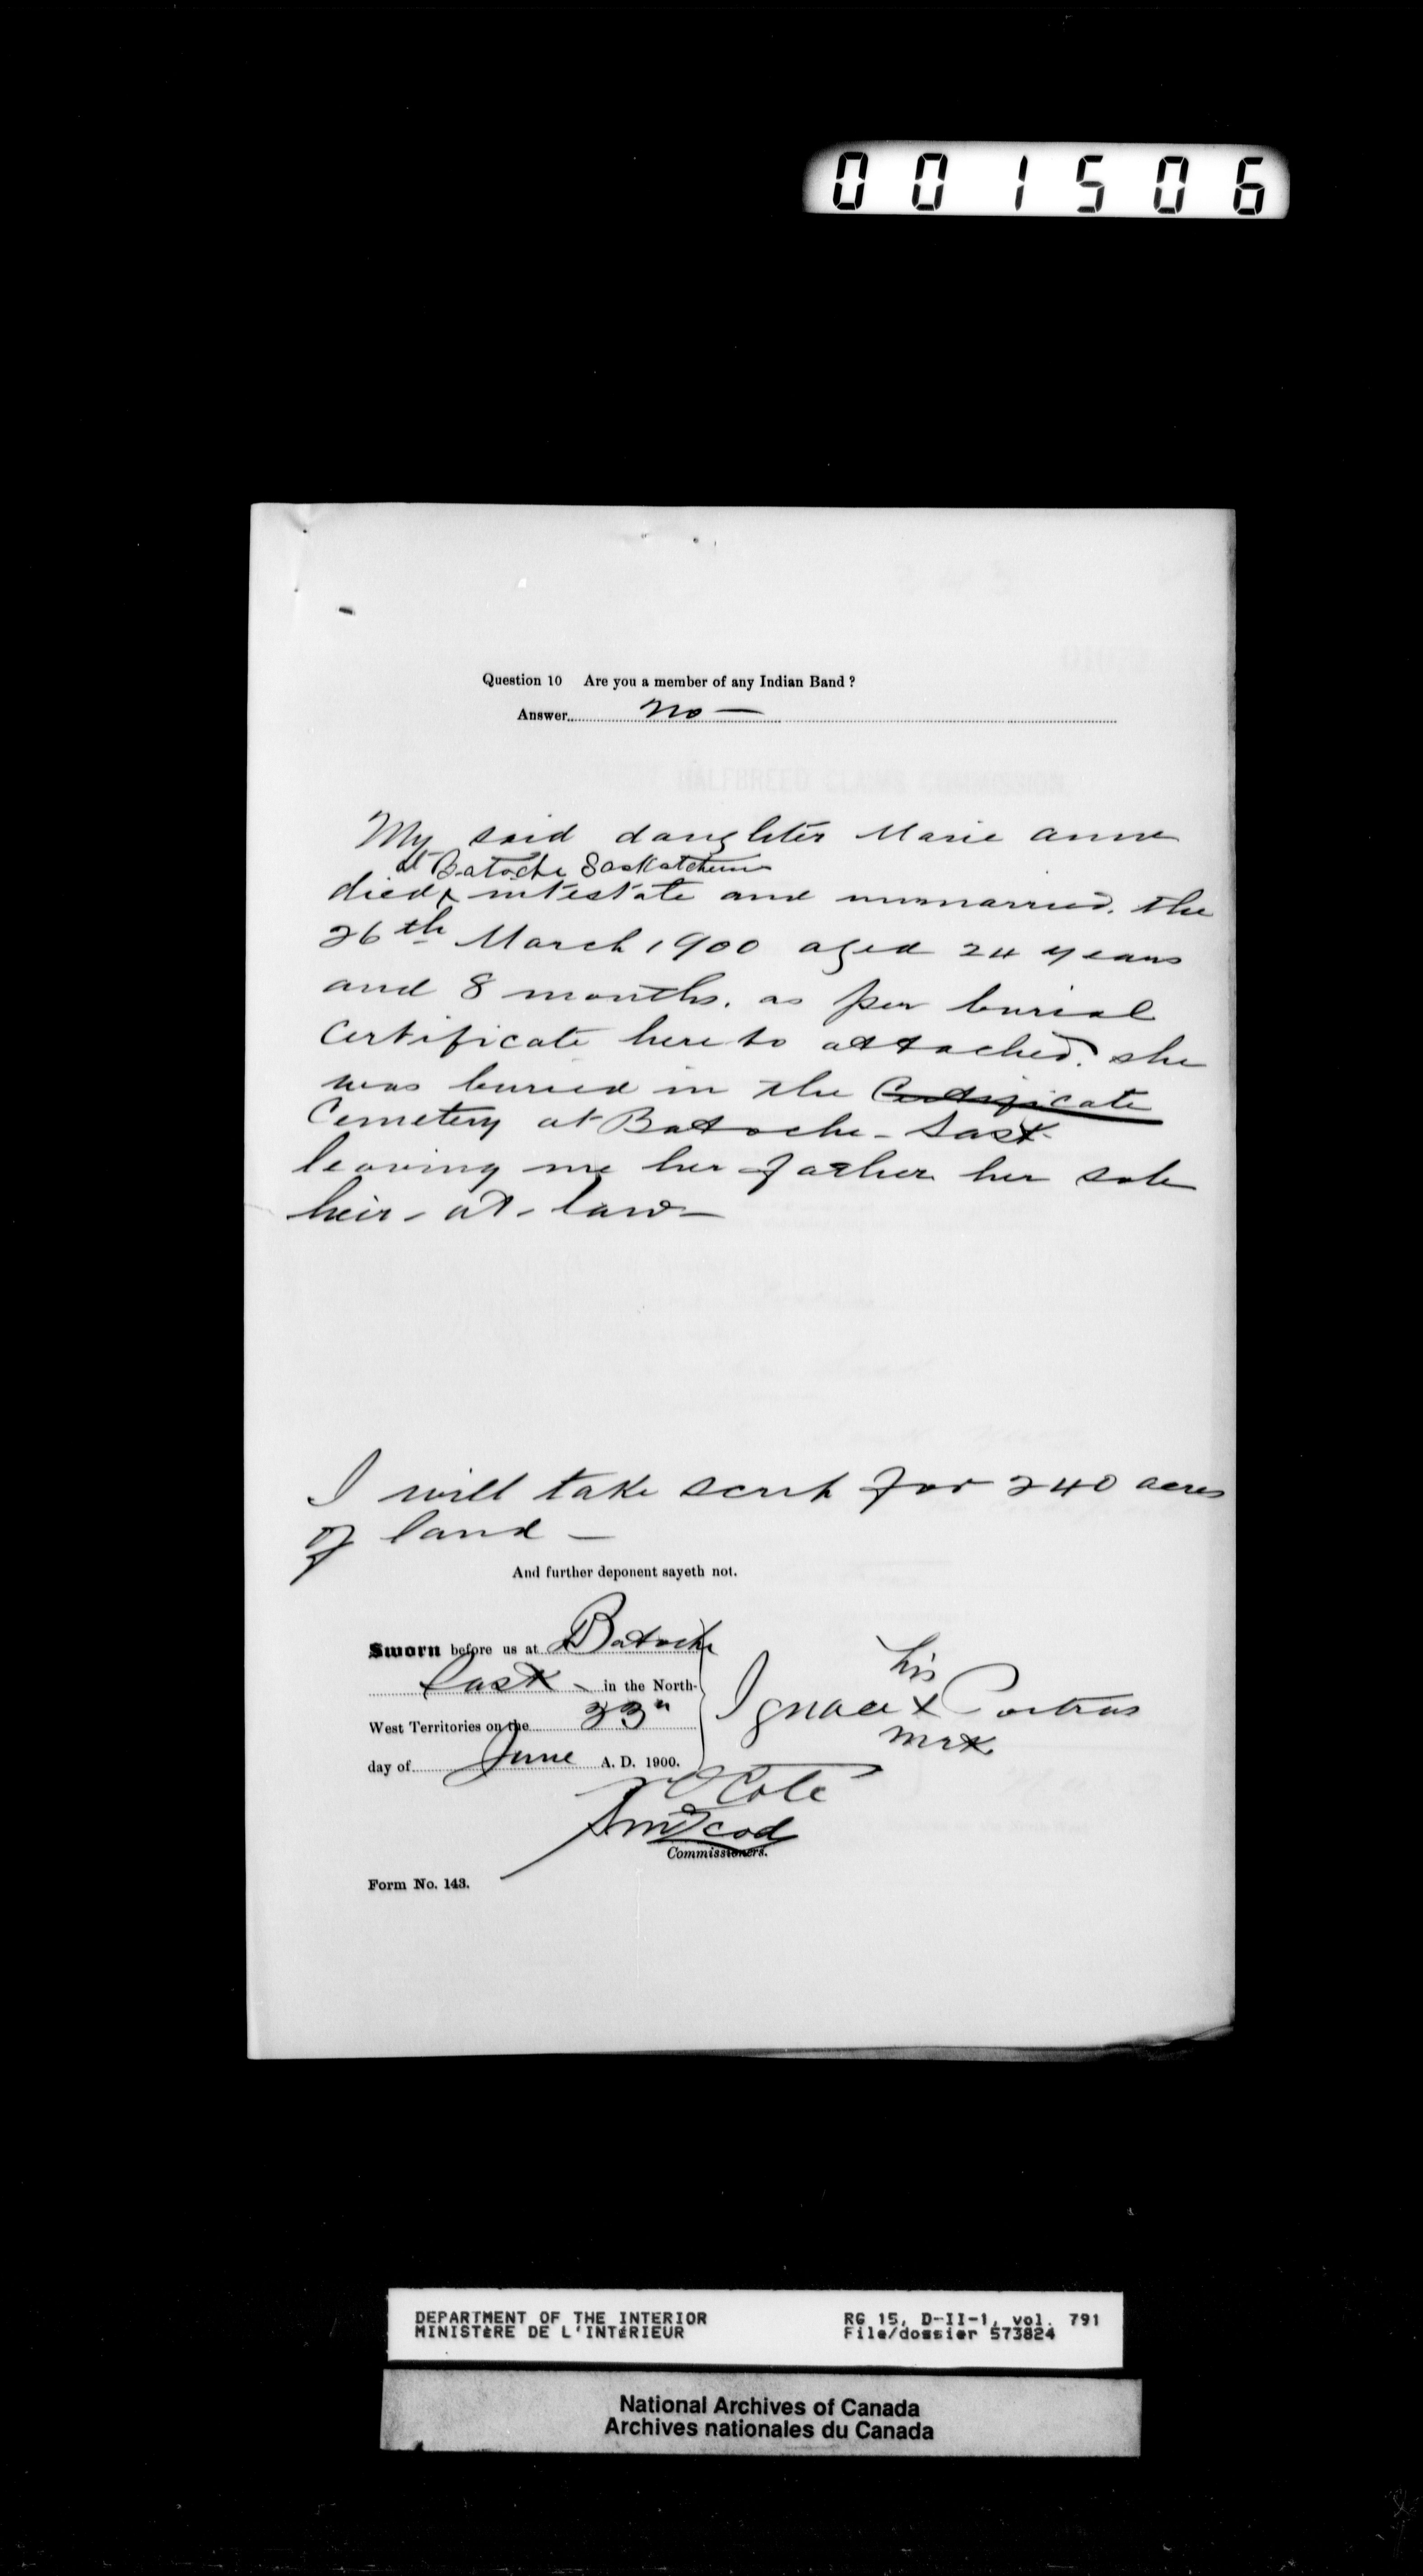 001506
Question 10 Are you a member of any Indian Band ?
Answer no —
HALFBREED CLAIMS COMMISSION
My said daughter Marie Anne
at Batoche Saskatchewan
died intestate and unmarried, the
26th March 1900 aged 24 years
and 8 months. as per burial
Certificate hereto attached. she
was buried in the Certificate
Cemetery at Batoche - Sask
leaving me her father her sole
heir-at-law —
I will take scrip for 240 acres
of land —
And further deponent sayeth not.
Sworn before us at Batoche
Sask - in the North-
West Territories on the 23
day of June A. D. 1900.
his
Ignace X Poitras
mrk
Cote
Commissioners.
Form No. 143.
DEPARTMENT OF THE INTERIOR RG 15, D-II-1, vol. 791
MINISTÈRE DE L'INTÉRIEUR File/dossier 573824
National Archives of Canada
Archives nationales du Canada